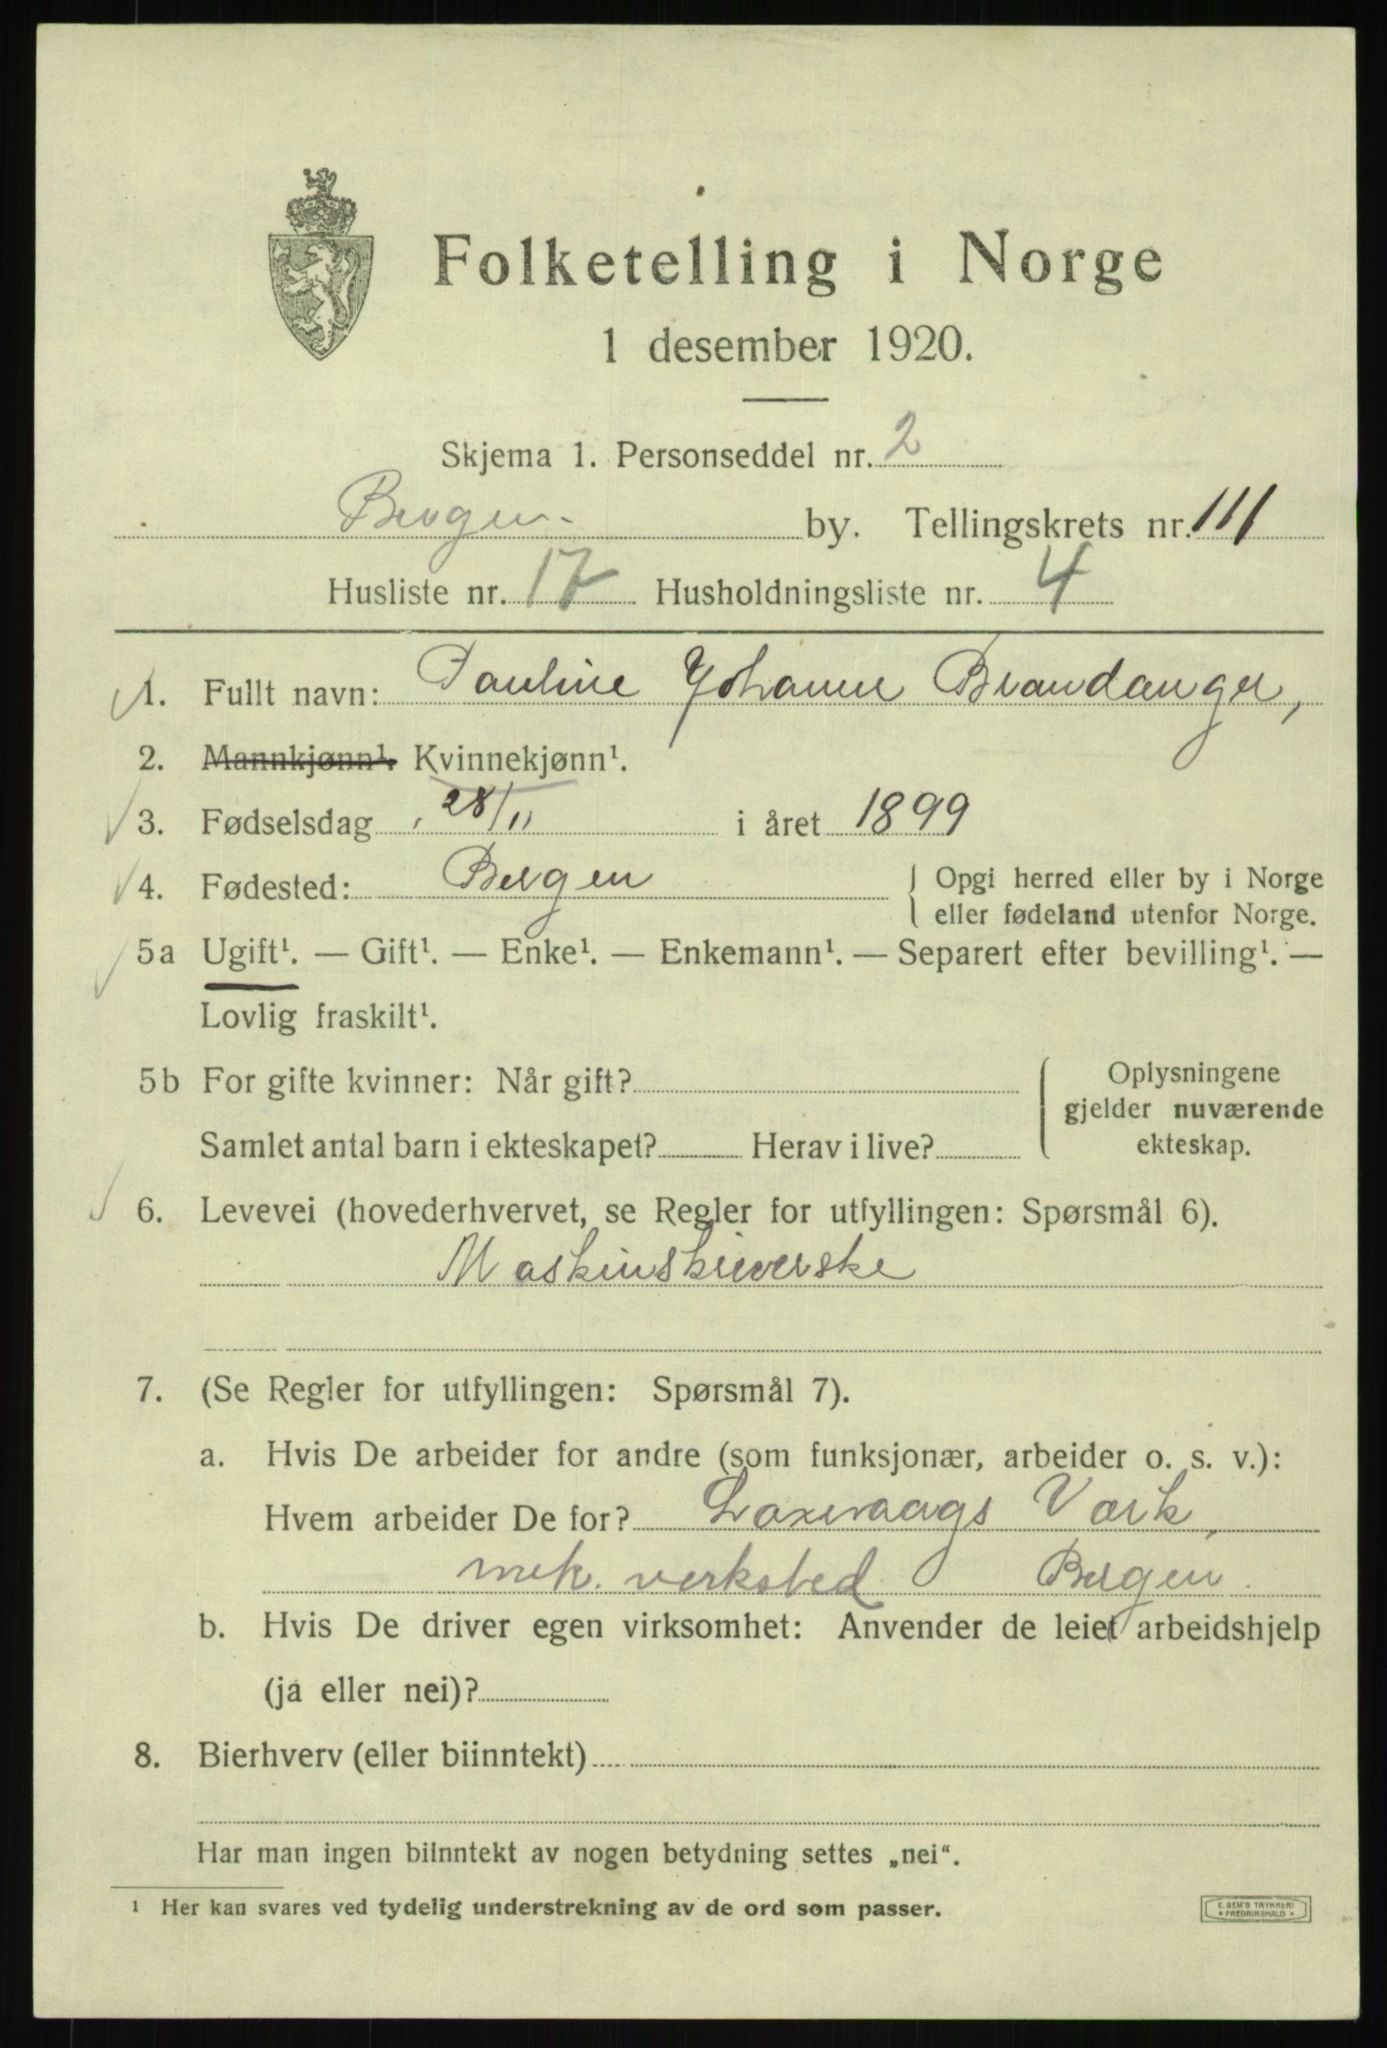 Folketelling i Norge
1 desember 1920.
Skjema 1. Personseddel nr. 2
Bergen. by. Tellingskrets nr. 111
Husliste nr. 17 Husholdningsliste nr. 4
1. Fullt navn: Pauline Johanne Brandanger,
2. Mannkjønn¹. Kvinnekjønn¹.
3. Fødselsdag 28/11 i året 1899
4. Fødested: Bergen { Opgi herred eller by i Norge
eller fødeland utenfor Norge.
5a Ugift¹. — Gift¹. — Enke¹. — Enkemann¹. — Separert efter bevilling¹. —
Lovlig fraskilt¹.
5b For gifte kvinner: Når gift? { Oplysningene
gjelder nuværende
Samlet antal barn i ekteskapet? Herav i live? ekteskap.
6. Levevei (hovederhvervet, se Regler for utfyllingen: Spørsmål 6).
Maskinskriverske
7. (Se Regler for utfyllingen: Spørsmål 7).
a. Hvis De arbeider for andre (som funksjonær, arbeider o. s. v.):
Hvem arbeider De for? Laxevaags Værk,
mek. verksted Bergen.
b. Hvis De driver egen virksomhet: Anvender de leiet arbeidshjelp
(ja eller nei)?
8. Bierhverv (eller biinntekt)
Har man ingen biinntekt av nogen betydning settes „nei“.
1 Her kan svares ved tydelig understrekning av de ord som passer.
E. SEM'S TRYKKERI
* FREDRIKSHALD *